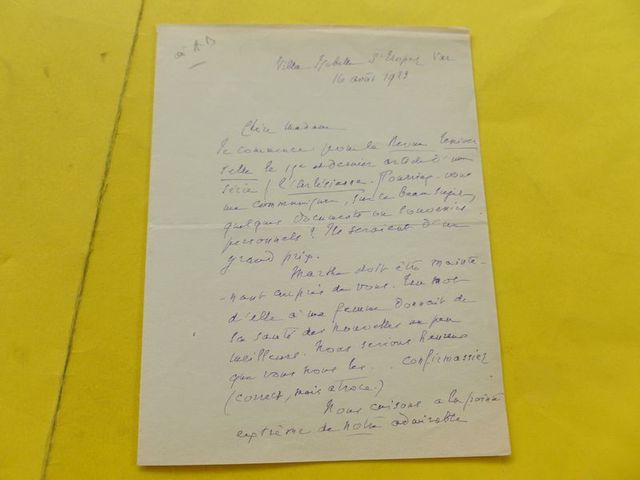 à A B
Villa Isabelle St Tropez Var
16 août 1923
Chère Madame
Je commence pour la Revue Univer
selle le 15e et dernier article d'une
série / l'artésienne. Pourriez-vous
me communiquer, sur ce beau sujet,
quelques documents ou souvenirs
personnels ? Ils seraient d'un
grand prix.
Marthe doit être mainte-
-nant auprès de vous. Un mot
d'elle à ma femme donnait de
sa santé des nouvelles un peu
meilleures. Nous serions heureux
que vous nous les . . . confirmassiez
(correct, mais atroce.)
Nous cuisons à la pointe
extrême de notre admirable